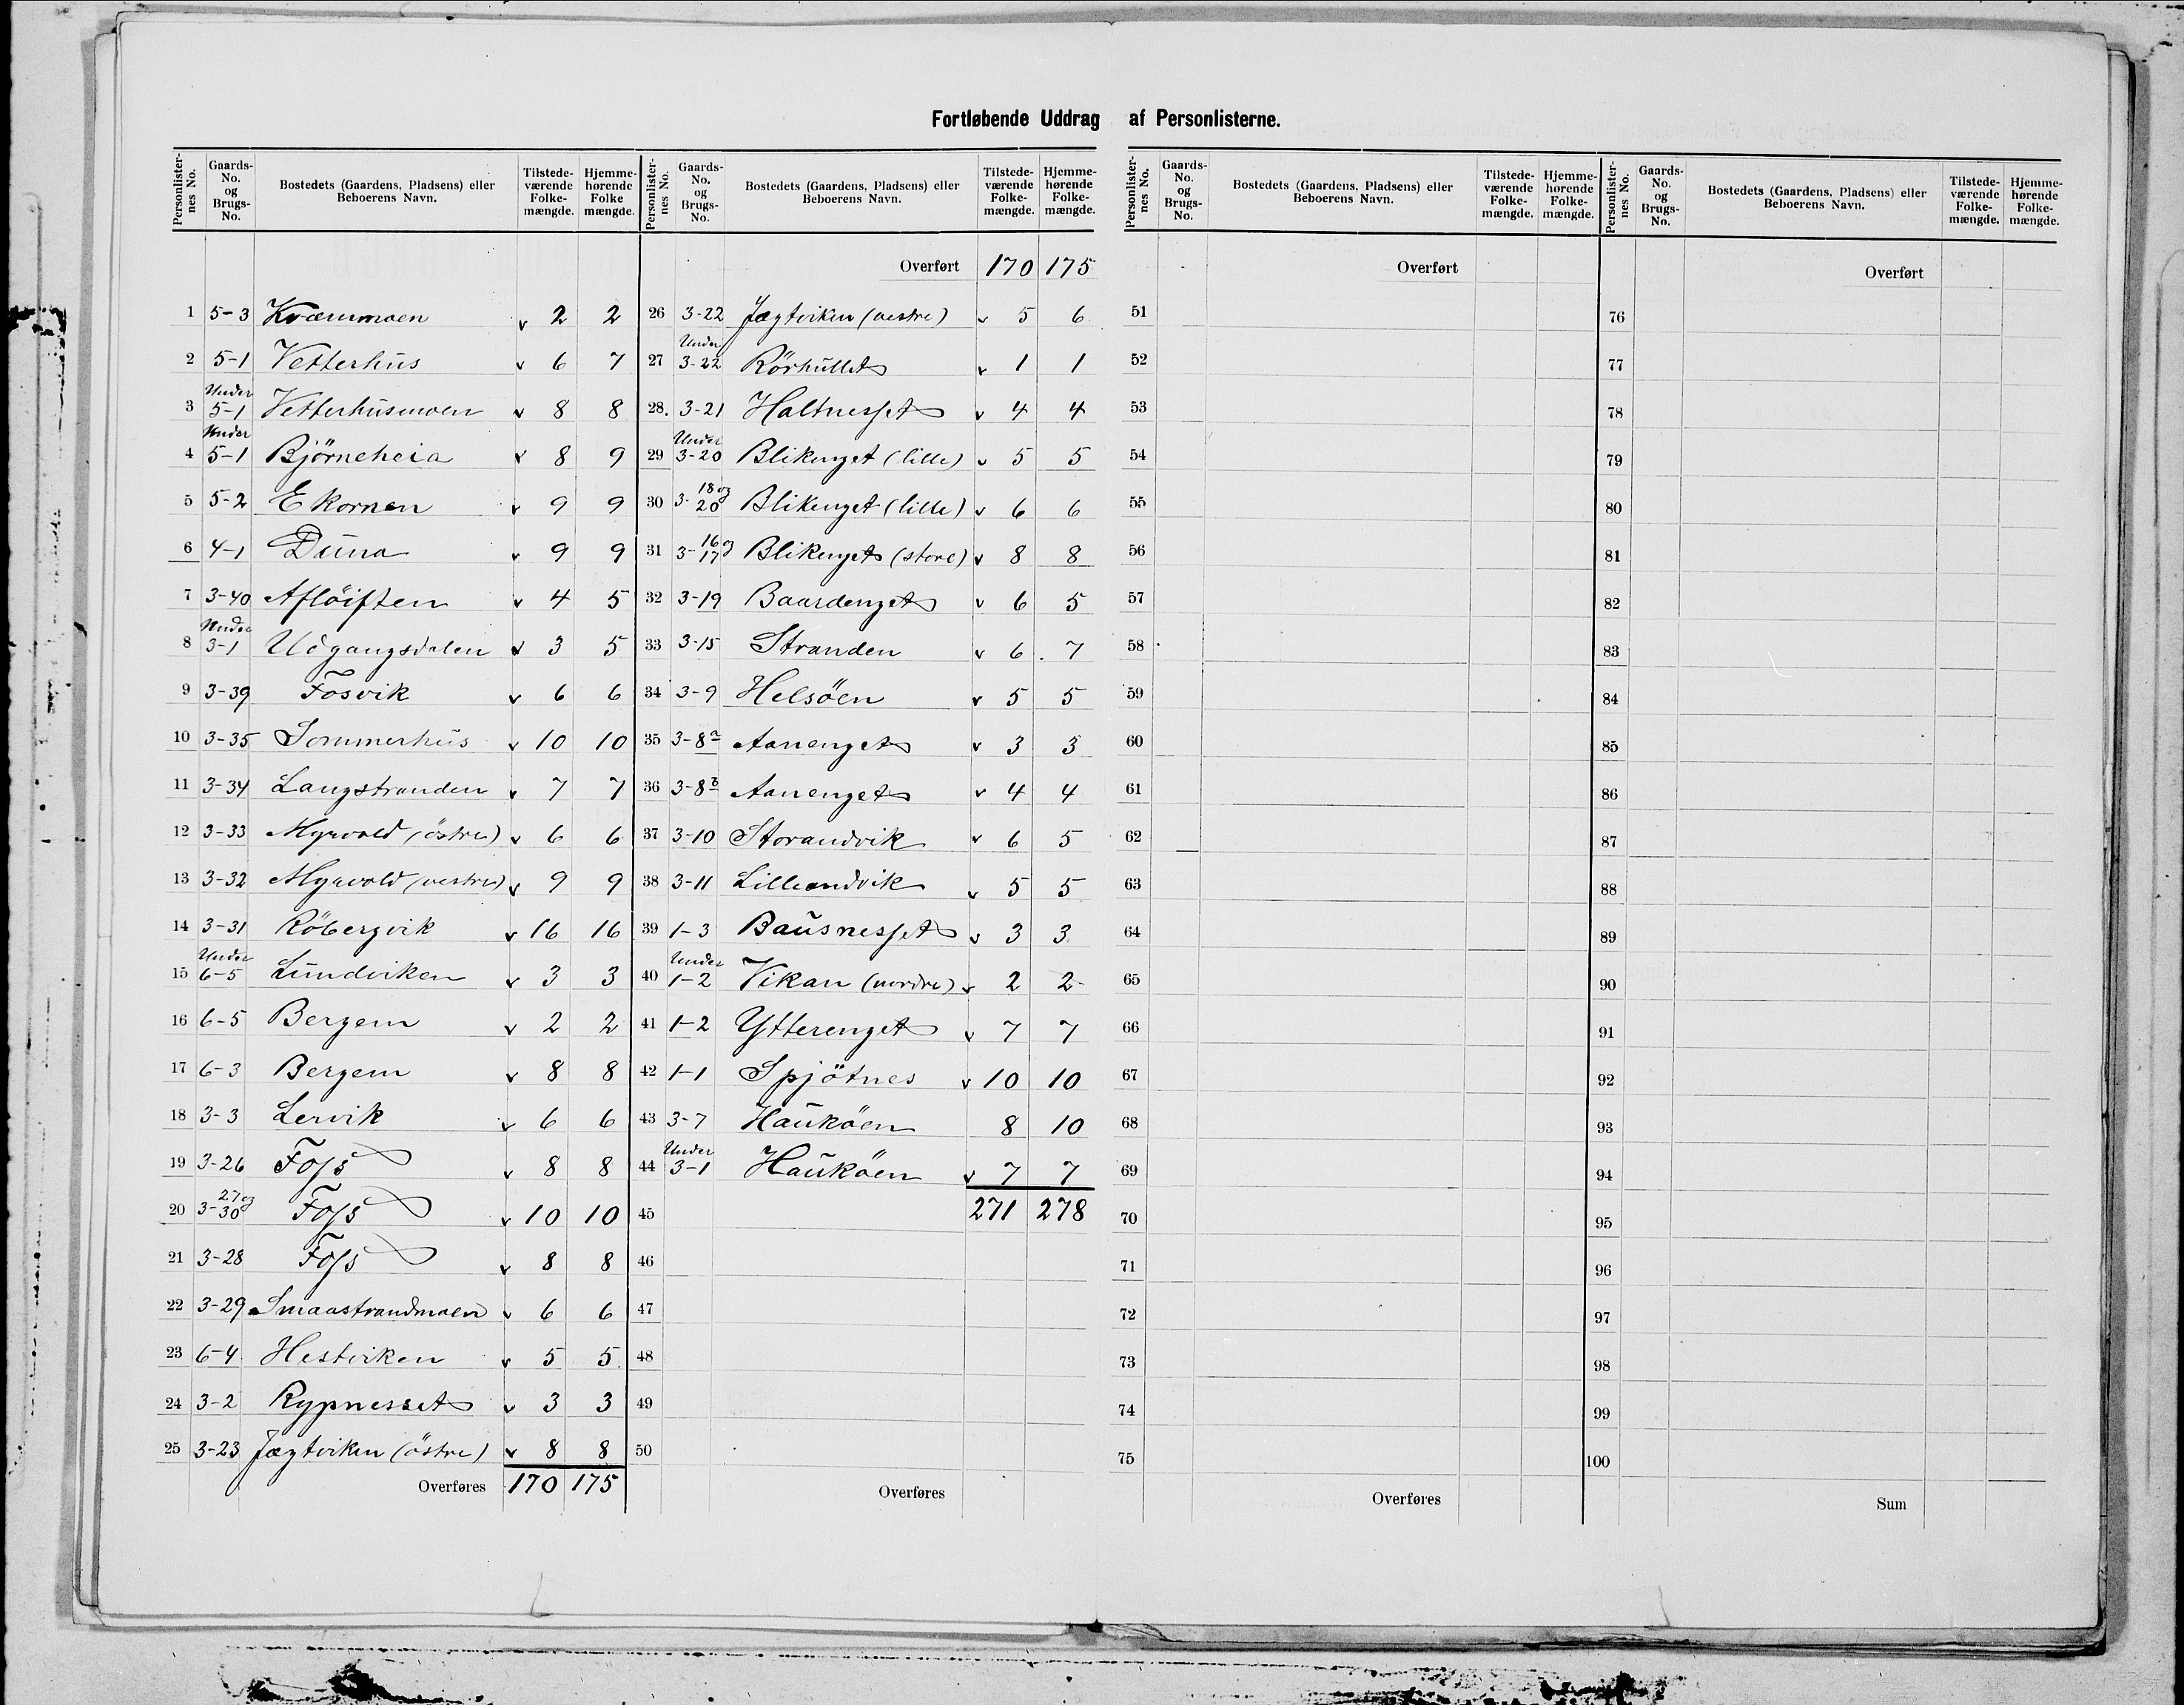 Fortløbende Uddrag af Personlisterne.
Personlisternes No. | Gaards-No. og Brugs-No. | Bostedets (Gaardens, Pladsens) eller Beboerens Navn. | Tilstedeværende Folkemængde. | Hjemmehørende Folkemængde.
1 5-3 Kværnmoen v 2 2
2 5-1 Vetterhus v 6 7
3 Under 5-1 Vetterhusmoen v 8 8
4 Under 5-1 Bjørneheia v 8 9
5 5-2 Ekornen v 9 9
6 4-1 Duna v 9 9
7 3-40 Afløiften v 4 5
8 Under 3-1 Udgangsdalen v 3 5
9 3-39 Fosvik v 6 6
10 3-35 Sommerhus v 10 10
11 3-34 Langstranden v 7 7
12 3-33 Myrvold (östre) v 6 6
13 3-32 Myrvold (vestre) v 9 9
14 3-31 Röbergvik v 16 16
15 Under 6-5 Lundviken v 3 3
16 6-5 Bergem v 2 2
17 6-3 Bergem v 8 8
18 3-3 Lervik v 6 6
19 3-26 Foss v 8 8
20 3-27 og 30 Foss v 10 10
21 3-28 Foss v 8 8
22 3-29 Smaastrandmoen v 6 6
23 6-4 Hestviken v 5 5
24 3-2 Rypnesset v 3 3
25 3-23 Jægtviken (östre) v 8 8
Overføres 170 175
Personlisternes No. | Gaards-No. og Brugs-No. | Bostedets (Gaardens, Pladsens) eller Beboerens Navn. | Tilstedeværende Folkemængde. | Hjemmehørende Folkemængde.
Overført 170 175
26 3-22 Jægtviken (vestre) v 5 6
27 Under 3-22 Rörhullet v 1 1
28. 3-21 Holtnesset v 4 4
29 Under 3-20 Blikenget (lille) v 5 5
30 3-18 og 20 Blikenget (lille) v 6 6
31 3-16 og 17 Blikenget (store) v 8 8
32 3-19 Baardenget v 6 5
33 3-15 Stranden v 6 7
34 3-9 Helsöen v 5 5
35 3-8a Aanenget v 3 3
36 3-8b Aanenget v 4 4
37 3-10 Storandvik v 6 5
38 3-11 Lilleandvik v 5 5
39 1-3 Bausnesset v 3 3
40 Under 1-2 Vikan (nordre) v 2 2
41 1-2 Ytterenget v 7 7
42 1-1 Spjötnes v 10 10
43 3-7 Hauköen 8 10
44 Under 3-1 Hauköen v 7 7
45 271 278
46
47
48
49
50
Overføres
Personlisternes No. | Gaards-No. og Brugs-No. | Bostedets (Gaardens, Pladsens) eller Beboerens Navn. | Tilstedeværende Folkemængde. | Hjemmehørende Folkemængde.
Overført
51
52
53
54
55
56
57
58
59
60
61
62
63
64
65
66
67
68
69
70
71
72
73
74
75
Overføres
Personlisternes No. | Gaards-No. og Brugs-No. | Bostedets (Gaardens, Pladsens) eller Beboerens Navn. | Tilstedeværende Folkemængde. | Hjemmehørende Folkemængde.
Overført
76
77
78
79
80
81
82
83
84
85
86
87
88
89
90
91
92
93
94
95
96
97
98
99
100
Sum